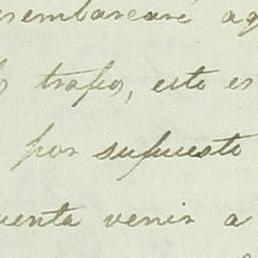 esembarcare aq
trapo, esto es
por supuesto
uenta venir a